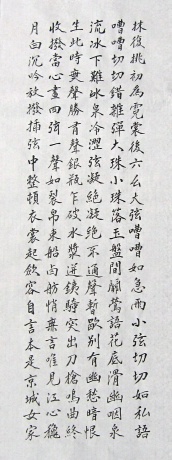 抹復挑初為霓裳後六么大弦嘈嘈如急雨小弦切切如私語
嘈嘈切切錯雜彈大珠小珠落玉盤間關鶯語花底滑幽咽泉
流冰下難冰泉冷澀弦凝絕凝絕不通聲暫歇別有幽愁暗恨
生此時無聲勝有聲銀瓶乍破水漿迸鐵騎突出刀槍鳴曲終
收撥當心畫四弦一聲如裂帛東船西舫悄無言唯見江心秋
月白沉吟放撥插弦中整頓衣裳起斂容自言本是京城女家